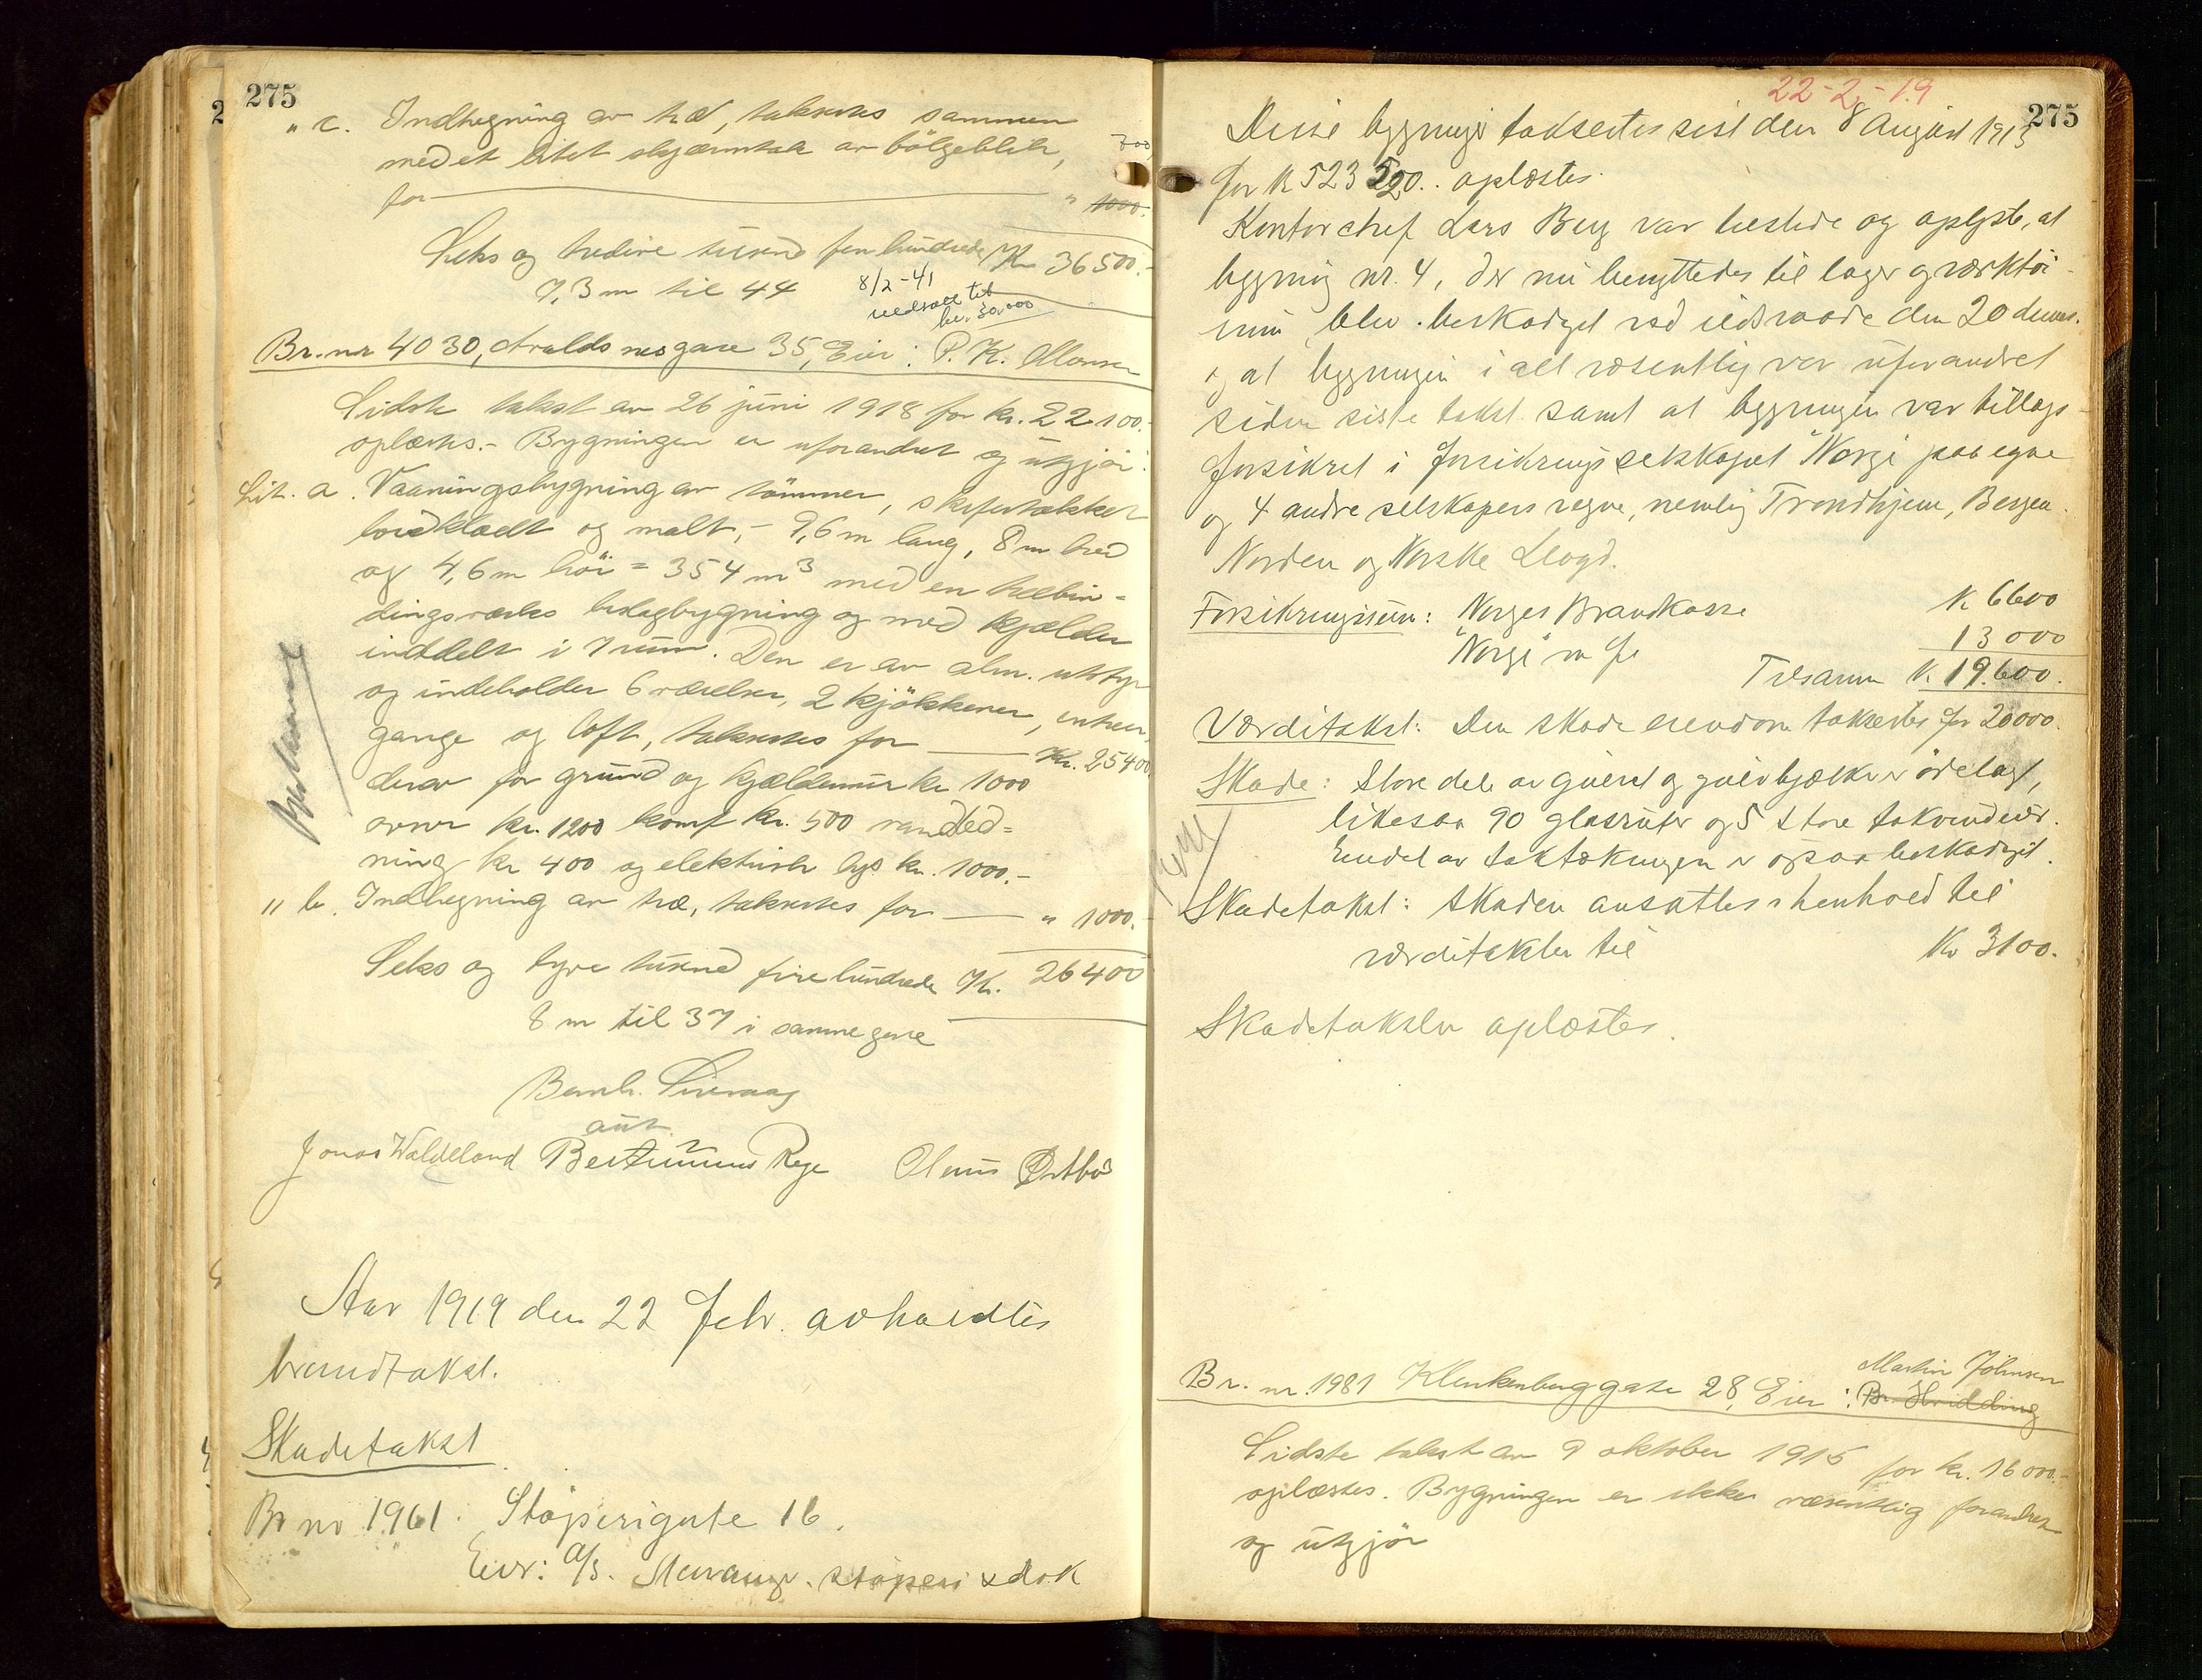 275
" c. Indhegning av træ, taksertes sammen
med et litet skjærmtak av bölgeblik, 700
for " 1000.-
Seks og tredive tusend fem hundrede Kr 36500.-
7,3 m til 44
8/2-41
nedsatt til
kr. 30.000
Br. nr 4030, Avaldsnesgate 35, Eier: P. K. Monsen
Sidste takst av 26 juni 1918 for kr. 22.100.-
oplæstes.- Bygningen er uforandret og utgjør:
Lit. a. Vaaningsbygning av tömmer, skifertækket
bordklædt og malt, - 9,6 m lang, 8 m bred
og 4,6 m höi = 354 m³ med en halvbin-
dingsværks bislagbygning og med kjælder
inddelt i 7 rum. Den er av alm. utstyr
og indeholder 6 værelser, 2 kjökkener, entreer,
gange og loft, taksertes for Kr. 25400.
derav for grund og kjældermur kr 1000
ovner kr. 1200 komf kr. 500 vandled=
ning kr 400 og elektrisk lys kr. 1000.-
" b. Indhegning av træ, taksertes for " 1000.-
Seks og tyve tusend fire hundrede Kr. 26400
8 m til 37 i samme gate
Bernh.
aut
Jonas Waldeland Bertinius Rege Olaus Østbö
Aar 1919 den 22 Febr. avholdtes
brandtakst.
Skadetakst
Br nr 1961. Stöperigate 16.
Eier: A/S. Stavanger. støperi & dok
22-2-19
275
Disse bygninger taksertes sist den 8 August 1913
for K 523 520.. oplæstes.
Kontorchef Lars Berg var tilstede og oplyste, at
bygning nr. 4, der nu benyttedes til lager og værktöi-
rum blev beskadiget ved ildsvaade den 20 dennes.
og at bygningen i alt væsentlig var uforandret
siden siste takst samt at bygningen var tillægs-
forsikret i forsikringsselskapet "Norge" paa egne
og 4 andre selskapers vegne, nemlig Trondhjem, Bergen.
Norden og Norske Lloyd.
Forsikringssum: Norges Brandkasse K 6600
"Norge" m fl 13000
Tilsamm K 19.600.
Værditakst: Den skade eiendom taksertes for 20000.
Skade: Store del av gulvet og gulvbjælker ödelagt,
likesaa 90 glasruter og 5 store takvinduer.
Endel av taktækningen er ogsaa beskadiget.
Skadetakst: Skaden ansattes i henhold til
værditaksten til Kr 3100.
Skadetaksten oplæstes.
Br. nr. 1981 Klenkenberggate 28, Eier: Br. Hvidding
Martin Johnsen
Sidste takst av 9 oktober 1915 for kr. 16000.-
oplæstes. Bygningen er ikke væsentlig forandret
og utgjör